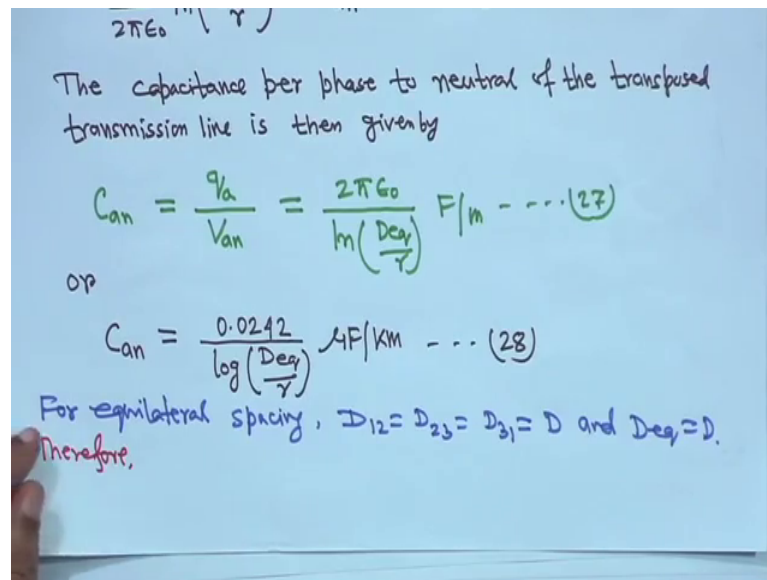 2πε₀ ln( r )
The capacitance per phase to neutral of the transposed
transmission line is then given by
Can = qa/Van = 2πε₀/ln(Deq/r) F/m - - - - (27)
or
Can = 0.0242/log(Deq/r) μF/km - - - (28)
For equilateral spacing, D12 = D23 = D31 = D and Deq = D.
Therefore,